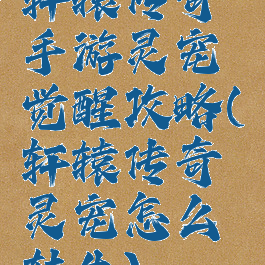 轩辕传奇
手游灵宠
觉醒攻略(
轩辕传奇
灵宠怎么